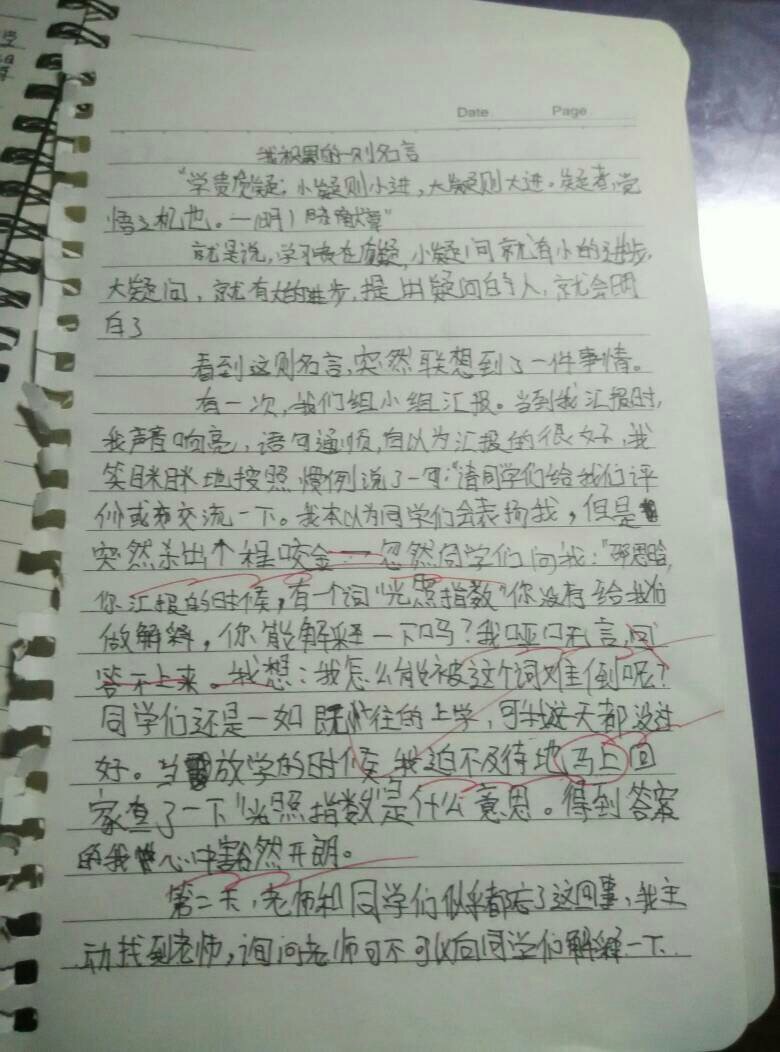 Date Page
我积累的一则名言
"学贵质疑,小疑则小进,大疑则大进。疑者,觉
悟之机也。—(明)陈献章"
就是说,学习贵在质疑,小疑问就有小的进步,
大疑问,就有大的进步,提出疑问的人,就会明
白了
看到这则名言,突然联想到了一件事情。
有一次,我们组小组汇报。当到我汇报时,
我声音响亮,语句通顺,自以为汇报的很好,我
笑眯眯地按照惯例说了一句:"请同学们给我们评
价或者交流一下。我本以为同学们会表扬我,但是
突然杀出个程咬金 忽然同学们问我:"
你汇报的时候,有一个词"光照指数"你没有给我们
做解释,你能解释一下吗?我哑口无言,回
答不上来。我想:我怎么能被这个词难倒呢?
同学们还是一如既往的上学,可我这天都没过
好。当放学的时候,我迫不及待地马上回
家查了一下"光照指数"是什么意思。得到答案
的我心中豁然开朗。
第二天,老师和同学们似乎都忘了这回事,我主
动找到老师,询问老师可不可以向同学们解释一下